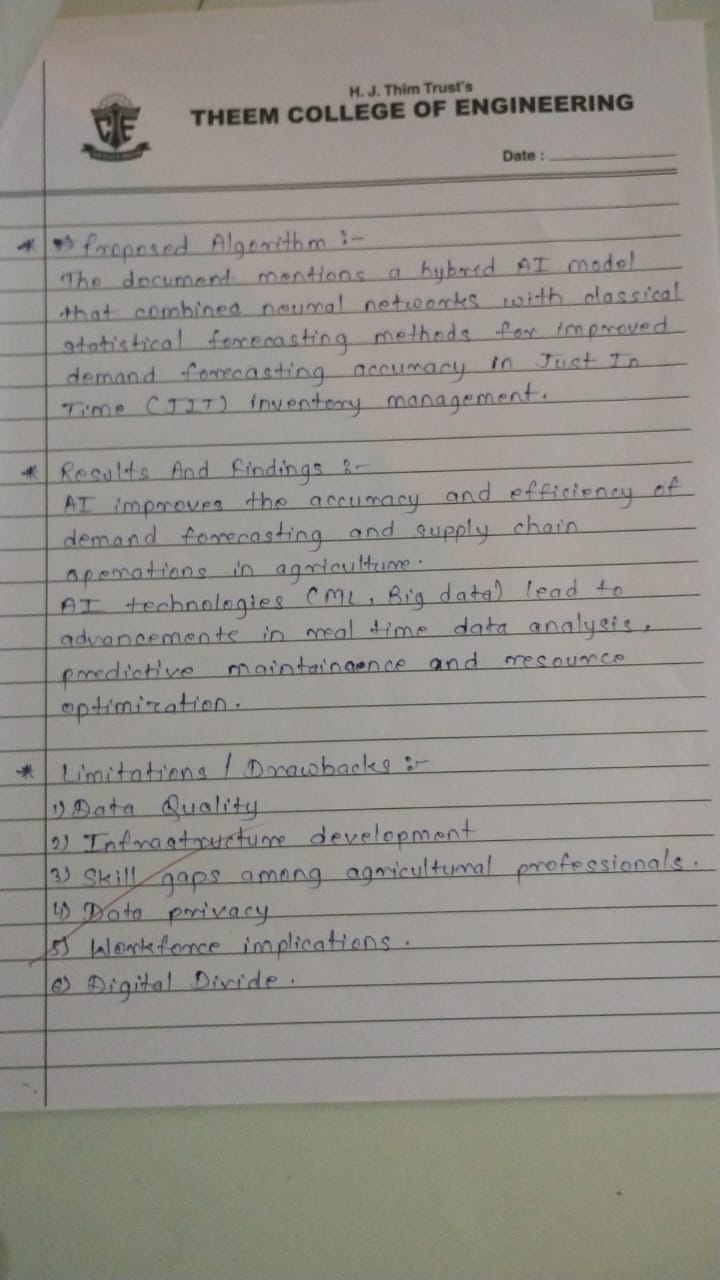 H. J. Thim Trust's
THEEM COLLEGE OF ENGINEERING
Date :
* Proposed Algorithm :-
The document mentions a hybrid AI model
that combines neural networks with classical
statistical forecasting methods for improved
demand forecasting accuracy in Just In
Time (JIT) inventory management.
* Results And findings :-
AI improves the accuracy and efficiency of
demand forecasting and supply chain
operations in agriculture.
AI technologies (ML, Big data) lead to
advancements in real time data analysis,
predictive maintainence and resource
optimization.
* Limitations / Drawbacks :-
1) Data Quality
2) Infrastructure development
3) Skill gaps among agricultural professionals.
4) Data privacy
5) Workforce implications.
6) Digital Divide.